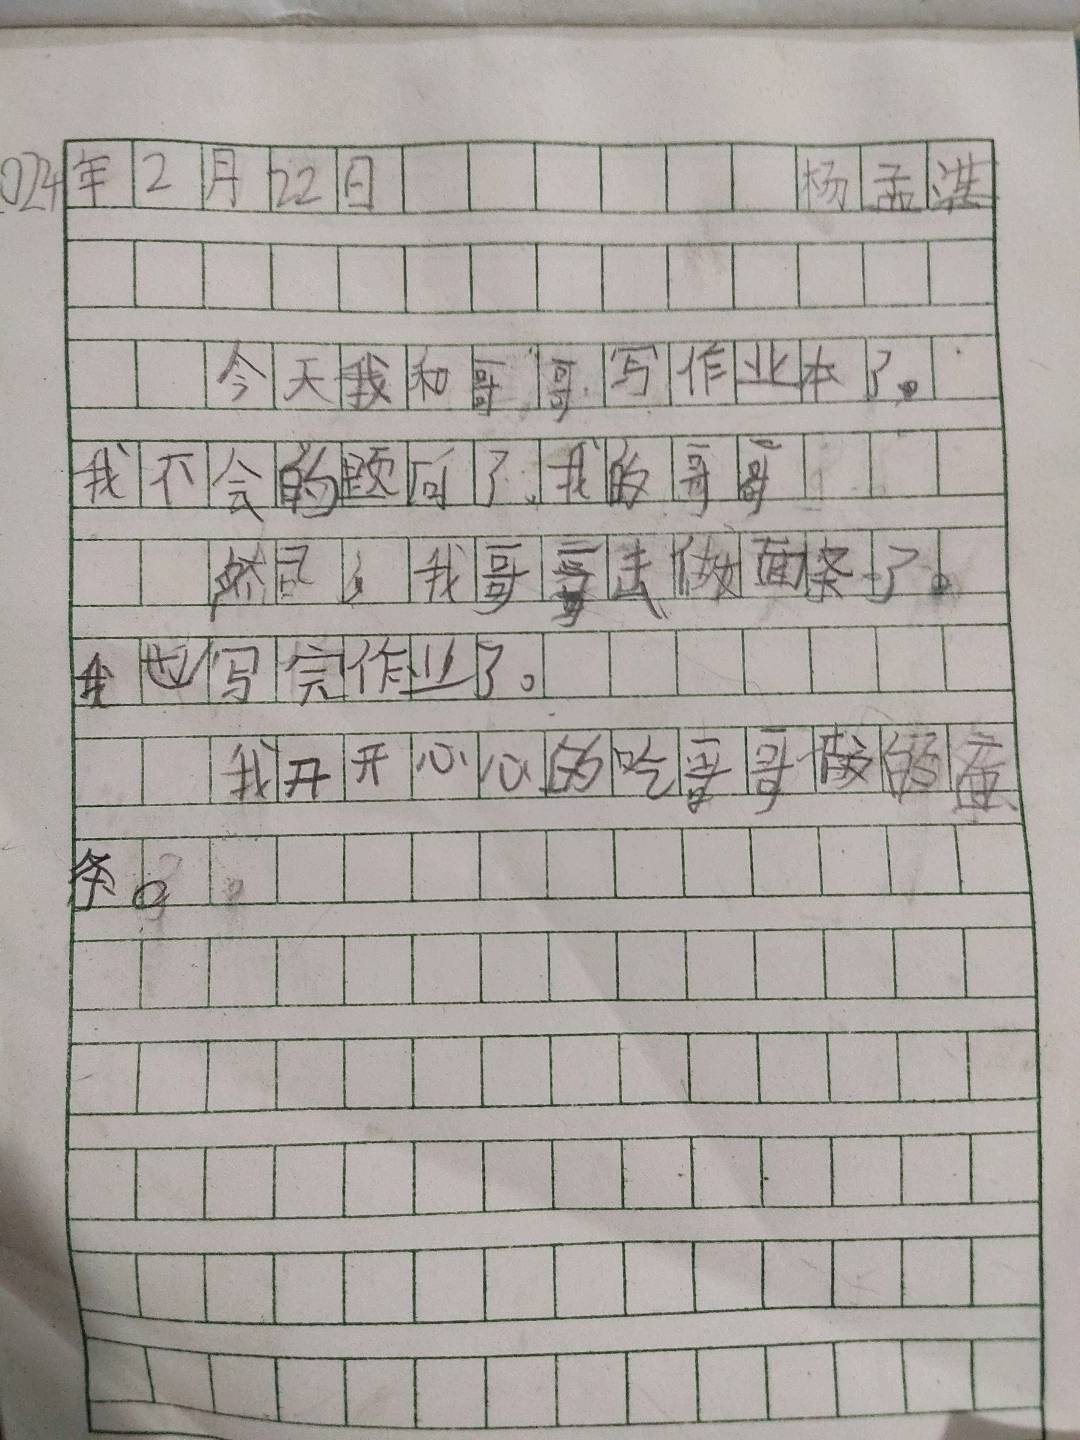 2024年2月22日 杨孟洪
今天我和哥哥写作业本了。
我不会的题问了、我的哥哥
然后，我哥哥去做面条了。
我也写完作业了。
我开开心心的吃哥哥做的面
条。